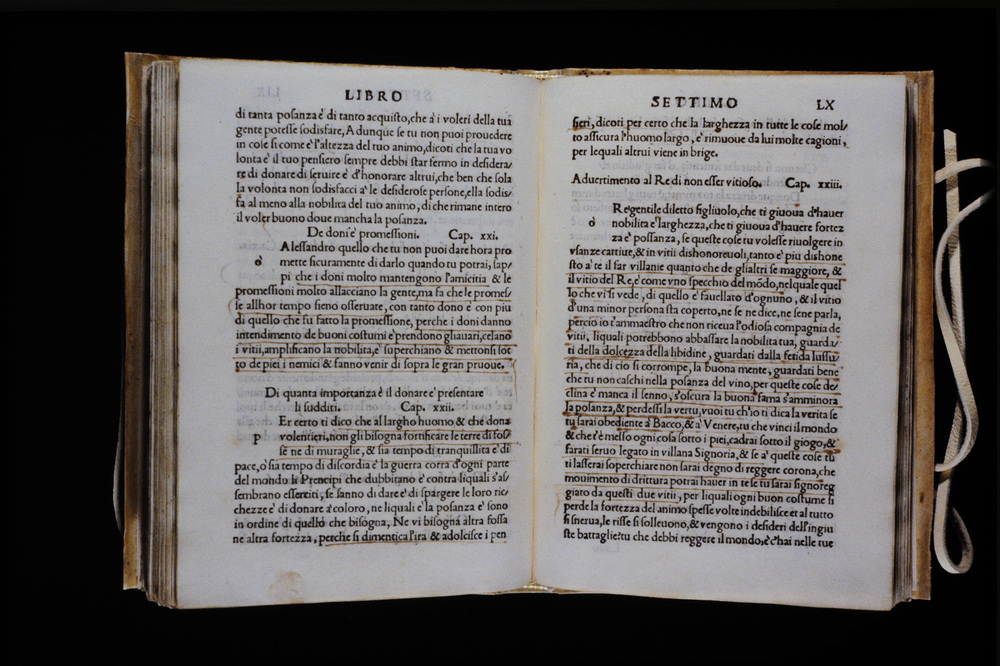 LIBRO
di tanta posanza è di tanto acquisto, che à i voleri della tua
gente potesse sodisfare, Adunque se tu non puoi prouedere
in cose si come è l'altezza del tuo animo, dicoti che la tua vo
lonta è il tuo pensiero sempre debbi star fermo in desidera/
re di donare di seruire è d'honorare altrui, che ben che sola
la volonta non sodisfacci a' le desiderose persone, ella sodis/
fa al meno alla nobilita del tuo animo, di che rimane intero
il voler buono doue mancha la posanza.
De doni è promessioni. Cap. xxi.
Alessandro quello che tu non puoi dare hora pro
ò mette sicuramente di darlo quando tu potrai, sap/
pi che i doni molto mantengono l'amicitia & le
promessioni molto allacciano la gente, ma fa che le promes/
se allhor tempo sieno osseruate, con tanto dono è con piu
di quello che fu fatto la promessione, perche i doni danno
intendimento de buoni costumi è prendono gliauari, celano
i vitii, amplificano la nobilita, è superchiano & mettonsi sot
to de piei i nemici & fanno venir di sopra le gran pruoue.
Di quanta importanza è il donare è presentare
li sudditi. Cap. xxii.
Er certo ti dico che al largho huomo & che dona
p volentieri, non gli bisogna fortificare le terre di fos/
se ne di muraglie, & sia tempo di tranquillita è di
pace, ò sia tempo di discordia è la guerra corra d'ogni parte
del mondo li Prencipi che dubbitano è contra liquali s'as/
sembrano esserciti, se fanno di dare è di spargere le loro ric/
chezze è di donare à coloro, ne liquali è la posanza è sono
in ordine di quello che bisogna, Ne vi bisogna altra fossa
ne altra fortezza, perche si dimentica l'ira & adolcisce i pen
SETTIMO LX
sieri, dicoti per certo che la larghezza in tutte le cose mol/
to assicura l'huomo largo, è rimuoue da lui molte cagioni,
per lequali altrui viene in brige.
Aduertimento al Re di non esser vitioso. Cap. xxiii.
Re gentile diletto figliuolo, che ti giuoua d'hauer
ò nobilita è larghezza, che ti giuoua d'hauere fortez
za è possanza, se queste cose tu volesse riuolgere in
vsanze cartiue, & in vitii dishonoreuoli, tanto è piu dishone
sto a' te il far villanie quanto che de glialtri se maggiore, &
il vitio del Re, è come vno specchio del mōdo, nel quale quel
lo che vi si vede, di quello è fauellato d'ognuno, & il vitio
d'una minor persona sta coperto, ne se ne dice, ne sene parla,
percio io t'ammaestro che non riceua l'odiosa compagnia de
vitii, liquali potrebbono abbassare la nobilita tua, guarda/
ti della dolcezza della libidine, guardati dalla fetida lussu/
ria, che di cio si corrompe, la buona mente, guardati bene
che tu non caschi nella posanza del vino, per queste cose de/
clina è manca il senno, s'oscura la buona fama s'amminora
la posanza, & perdessi la vertu, vuoi tu ch'io ti dica la verita se
tu sarai obediente à Bacco, & à Venere, tu che vinci il mondo
& che t'è messo ogni cosa sotto i piei, cadrai sotto il giogo, &
sarati seruo legato in villana Signoria, & se a' queste cose tu
ti lasserai soperchiare non sarai degno di reggere corona, che
mouimento di drittura potrai hauer in te se tu sarai signoreg
giato da questi due vitii, per liquali ogni buon costume si
perde la fortezza del animo spesse volte indebilisce et al tutto
si snerua, le risse si solleuono, & vengono i desideri dell'ingiu
ste battaglie: tu che debbi reggere il mondo, è c'hai nelle tue